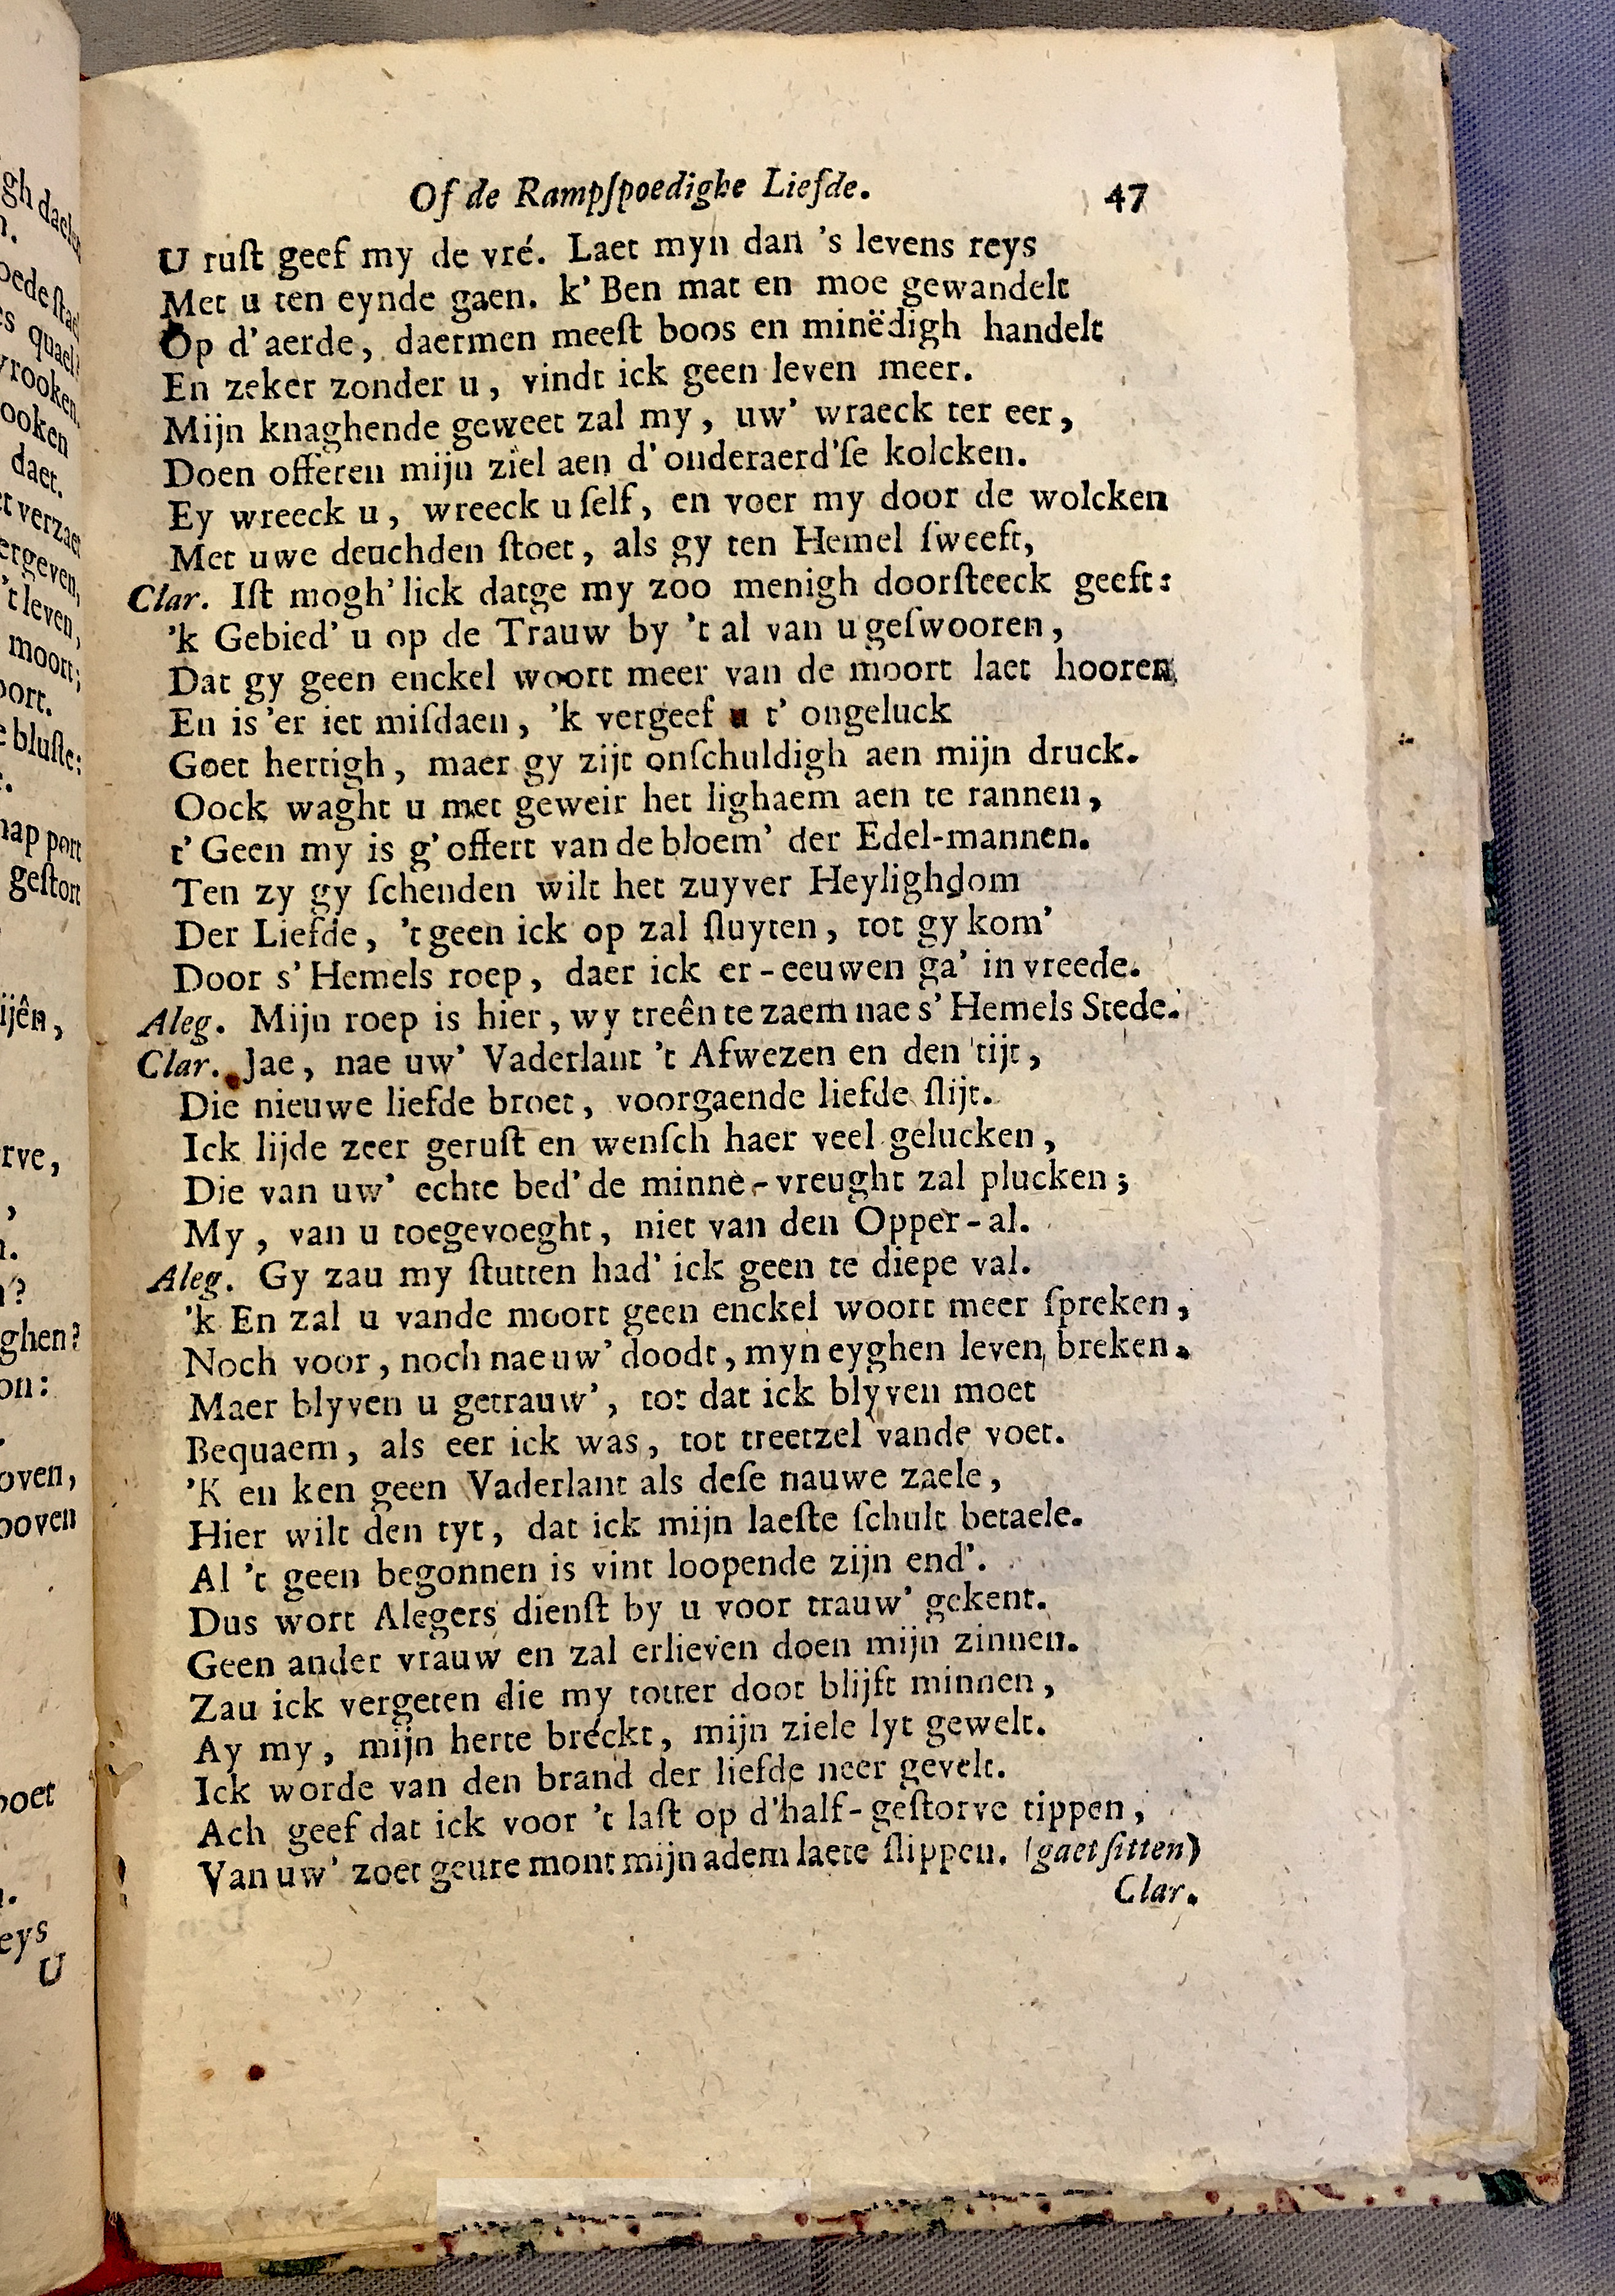 Of de Rampſpoedighe Liefde. 47
U ruſt geef my de vré. Laet myn dan 's levens reys
Met u ten eynde gaen. k' Ben mat en moe gewandelt
Op d'aerde, daermen meeſt boos en minëdigh handelt
En zeker zonder u, vindt ick geen leven meer.
Mijn knaghende geweet zal my, uw' wraeck ter eer,
Doen offeren mijn ziel aen d'onderaerd'ſe kolcken.
Ey wreeck u, wreeck u ſelf, en voer my door de wolcken
Met uwe deuchden ſtoet, als gy ten Hemel ſweeft,
Clar. Iſt mogh'lick datge my zoo menigh doorſteeck geeft:
'k Gebied' u op de Trauw by 't al van u geſwooren,
Dat gy geen enckel woort meer van de moort laet hooren
En is 'er iet miſdaen, 'k vergeef u t' ongeluck
Goet hertigh, maer gy zijt onſchuldigh aen mijn druck.
Oock waght u met geweir het lighaem aen te rannen,
t' Geen my is g'offert van de bloem' der Edel-mannen.
Ten zy gy ſchenden wilt het zuyver Heylighdom
Der Liefde, 't geen ick op zal ſluyten, tot gy kom'
Door s' Hemels roep, daer ick er-eeuwen ga' in vreede.
Aleg. Mijn roep is hier, wy treên te zaem nae s' Hemels Stede.
Clar. Jae, nae uw' Vaderlant 't Afwezen en den tijt,
Die nieuwe liefde broet, voorgaende liefde ſlijt.
Ick lijde zeer geruſt en wenſch haer veel gelucken,
Die van uw' echte bed' de minne-vreught zal plucken;
My, van u toegevoeght, niet van den Opper-al.
Aleg. Gy zau my ſtutten had' ick geen te diepe val.
'k En zal u vande moort geen enckel woort meer ſpreken,
Noch voor, noch nae uw' doodt, myn eyghen leven breken.
Maer blyven u getrauw', tot dat ick blyven moet
Bequaem, als eer ick was, tot treetzel vande voet.
'K en ken geen Vaderlant als deſe nauwe zaele,
Hier wilt den tyt, dat ick mijn laeſte ſchult betaele.
Al 't geen begonnen is vint loopende zijn end'.
Dus wort Alegers dienſt by u voor trauw' gekent.
Geen ander vrauw en zal erlieven doen mijn zinnen.
Zau ick vergeten die my totter doot blijft minnen,
Ay my, mijn herte breckt, mijn ziele lyt gewelt.
Ick worde van den brand der liefde neer gevelt.
Ach geef dat ick voor 't laſt op d'half-geſtorve tippen,
Van uw' zoet geure mont mijn adem laete ſlippen. (gaet ſitten)
Clar.